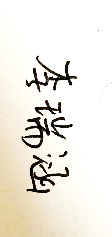 李瑞涵